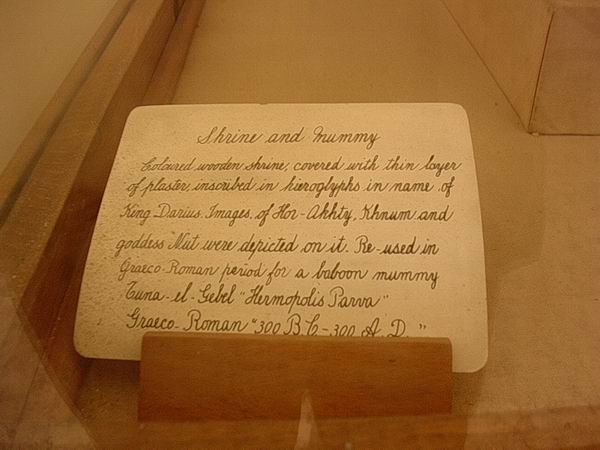 Shrine and Mummy
Coloured wooden shrine, covered with thin layer
of plaster, inscribed in hieroglyphs in name of
King Darius. Images of Hor-Akhty, Khnum and
goddess Mut were depicted on it. Re-used in
Graeco-Roman period for a baboon mummy
Tuna-el-Gebel "Hermopolis Parva"
Graeco-Roman "300 B.C-300 A.D."